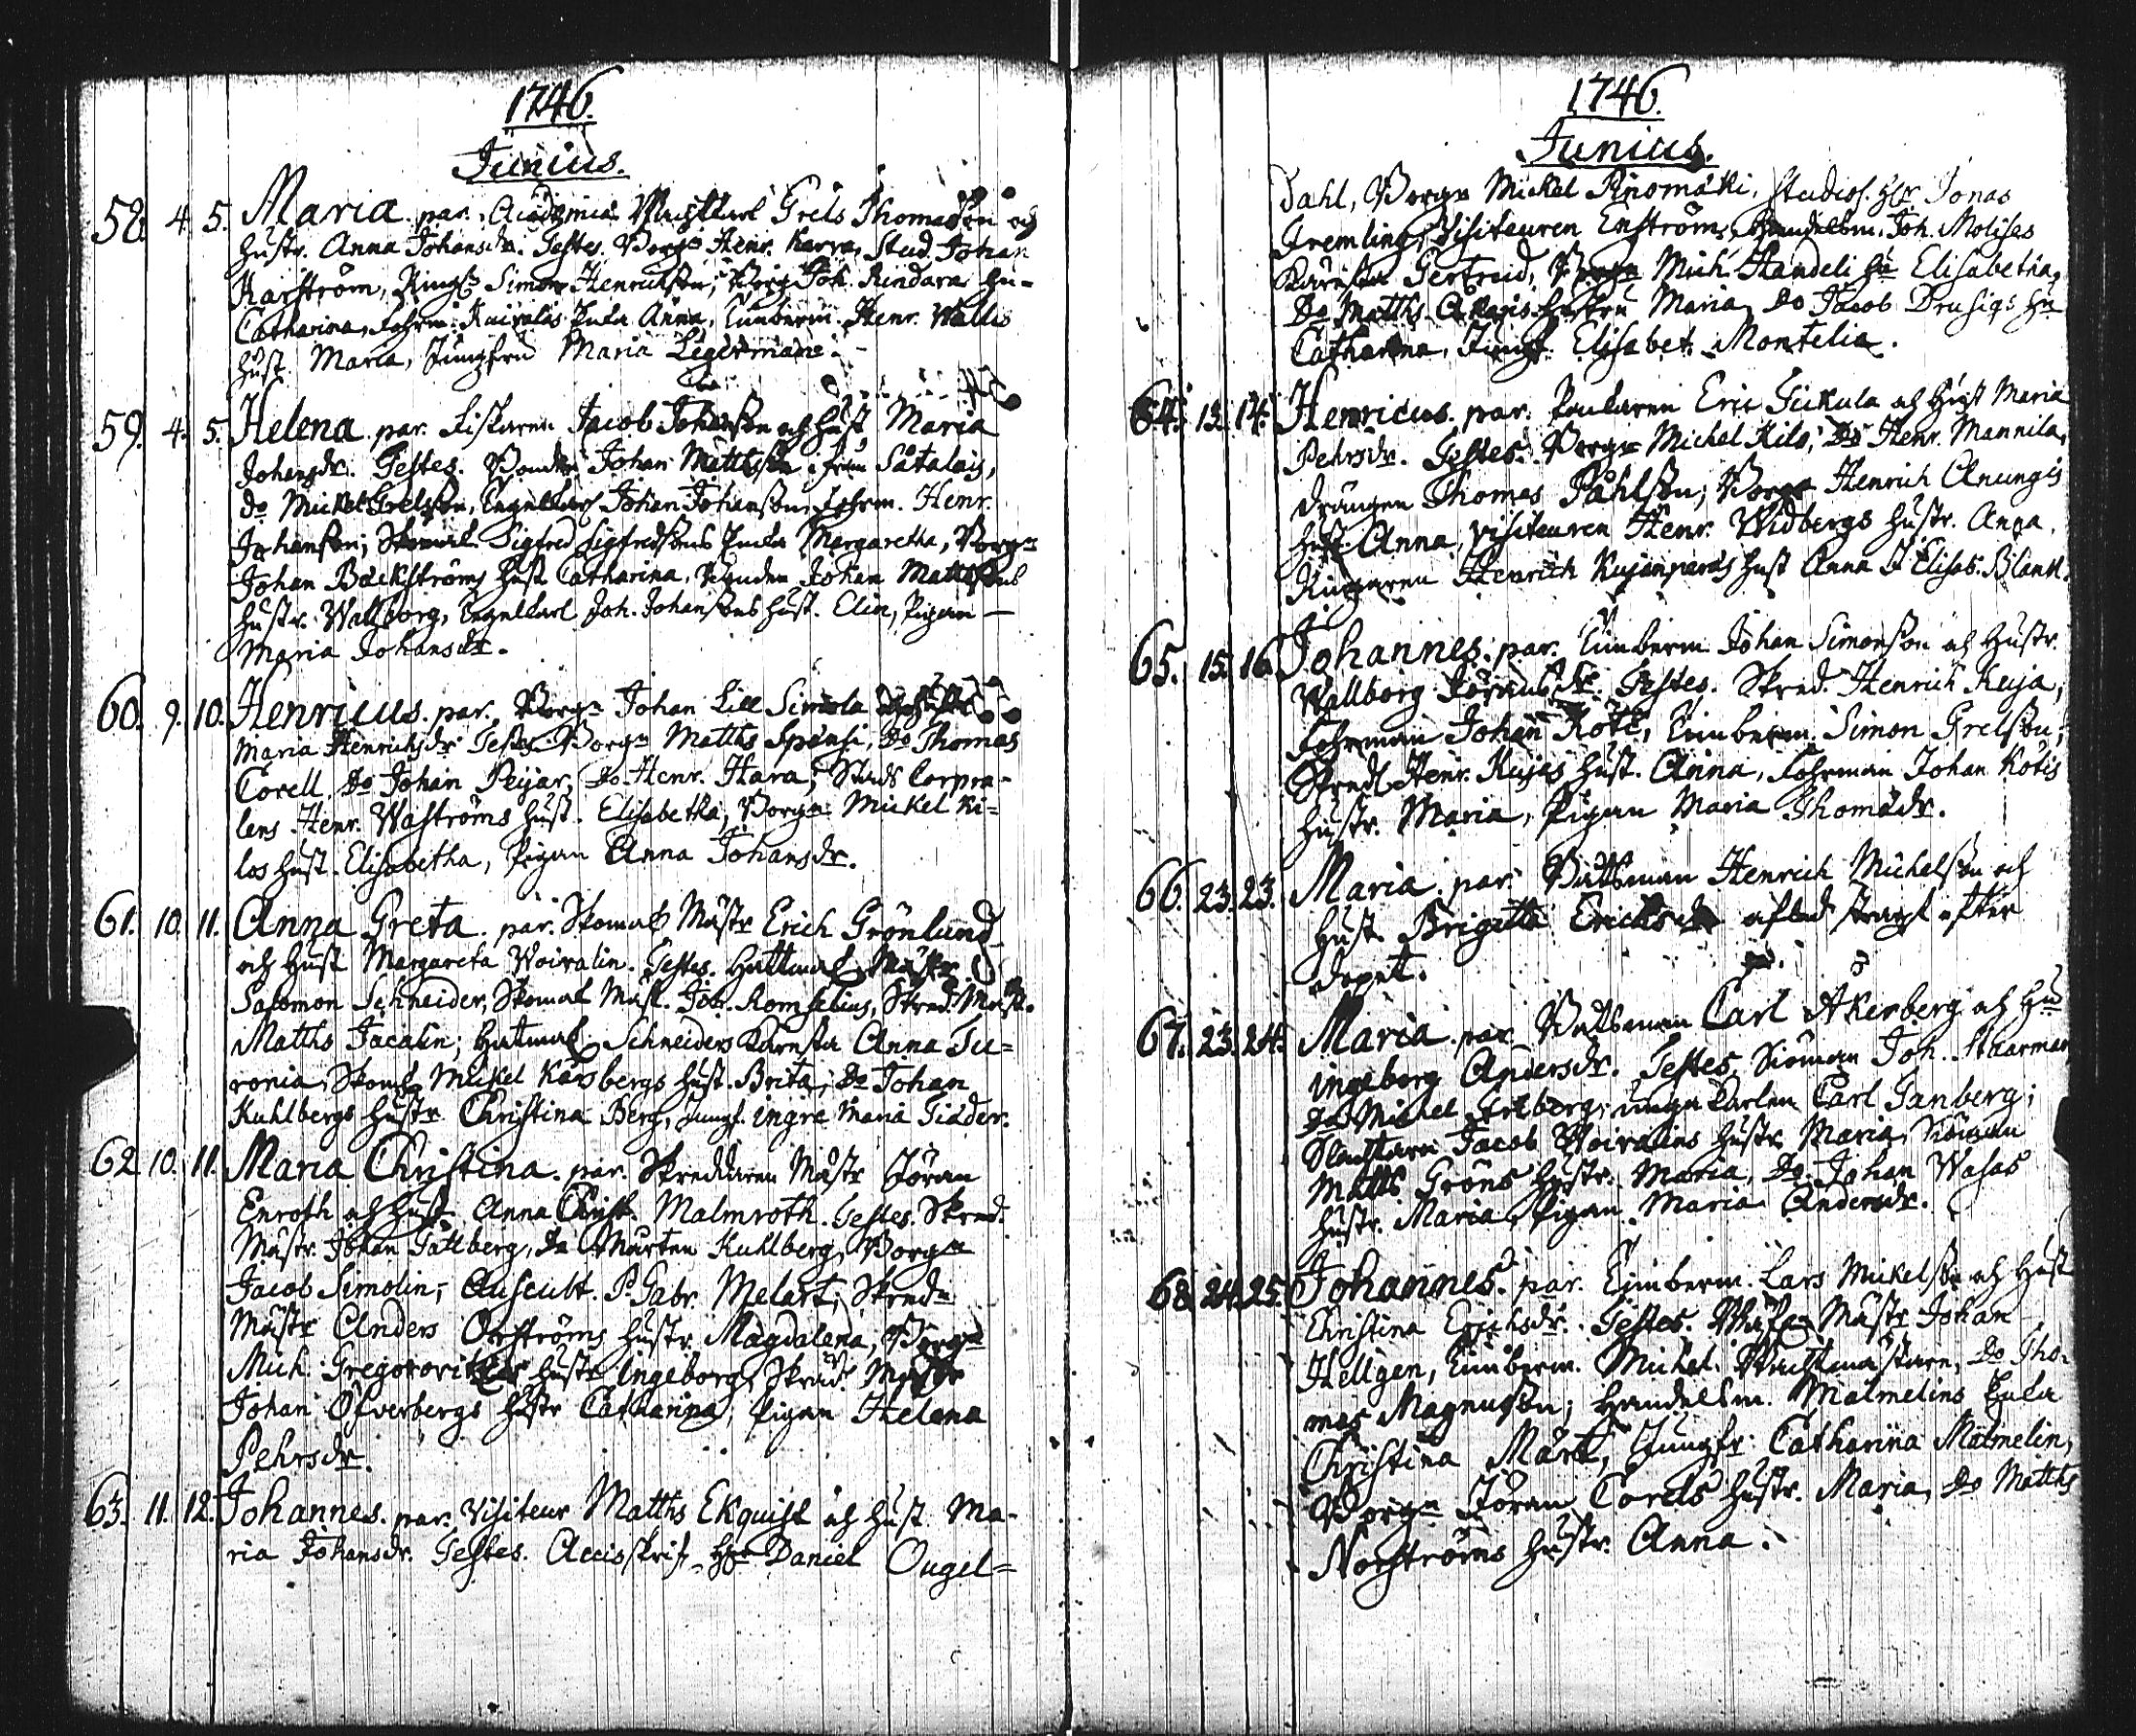 1746.
Junius.
58. 4. 5. Maria. par. Academiæ Wachtkarl Grels Thomasson och
Hustr. Anna Johansdr. Testes. Borgn Henr. Karra, Stud. Johan
Karström, Simon Henrichsson, Borg Joh. Rindara Hu-
Catharina, Anna, Timberm. Henr. Wallis
Hust. Maria, Jungfru Maria Legerman.
59. 4. 5. Helena. par. Fiskaren Jacob Johansson och Hust Maria
Johansdr. Testes. Bonden Johan Mattsson ifrån Såtalais,
Do Mickel Grelsson, Johan Johansson, Fohrm. Henr.
Johansson; Sigfred Sigfredsons Enka Margaretha, Borgn
Johan Backströms Hust Catharina, Bonden Johan Mattssons
Hustr. Wallborg, Joh. Johanssons Hust. Elin, Pigan
Maria Johansdr.
60. 9. 10. Henricus. par. Borgn Johan Lill Simola
Maria Henrichsdr Testes. Borgn Matths Spånsi, Do Thomas
Corell, Do Johan Peijar, Do Henr. Hara, Stads Corpra-
lens Henr. Waströms Hust. Elisabetha, Borgn Mickel Ki-
los Hust. Elisabetha, Pigan Anna Johansdr.
61. 10. 11. Anna Greta. par. Skomak Mästr Erich Grönlund
och Hust Margareta Woivalin. Testes. Hattmak Mästr
Salomon Schneider, Skomak Mäst. Romselius, Skred. Mäst.
Matths Jacalin; Hatmak Schneiders Käresta Anna Tu-
ronia, Skomk Mickel Kårbergs Hust. Brita, Do Johan
Kuhlbergs Hustr Christina Berg, Jungf. Ingre Maria Tidder.
62 10. 11. Maria Christina. par. Skreddaren Mästr Jöran
Enroth och Hust. Anna Christ. Malmroth. Testes. Skred.
Mästr. Johan Tättberg, Do Mårten Kuhlberg, Borgn
Jacob Simolin; Auscult. P. Gabr. Melart; Skredn
Mästr Anders Orströms Hustr. Magdalena, Borgn
Mich: Hustr Ingeborg, Skräd. Mästr
Johan Öfverbergs Hustr Catharina; Pigan Helena
Pehrsdr.
63. 11. 12. Johannes. par. Visiteur Matths Ekquist och Hust. Ma-
ria Johansdr. Testes. Accisskrif. Hr Daniel Ougel=
1746.
Junius.
Dahl, Borgn Mickel Rinomäki, Studios. Hr Jonas
Fremling, Visiteuren Enström, Handelsm. Joh. Molises
Kärestan Gertrud, Borgn Mich. Handeli Hu Elisabetha,
Do Matths Hustru Maria, Do Jacob Drusigs Hu
Catharina, Jungf. Elisabet Montelia.
64. 13. 14. Henricus. par. Eric Tuikula och Hust Maria
Pehrsdr. Testes. Borgn Michel Kilo, Do Henr. Mannila,
Drängen Thomas Påhlson; Borgn Henrich Anungis
Hust. Anna, Visiteuren Henr. Widbergs Hustr. Anna,
Henrich Kujanperäs Hust Anna J Elisab. Blank.
65. 15. 16. Johannes. par. Timberm. Johan Simonson och Hustr.
Wallborg Jöransdr. Testes. Skred. Henrich Keija,
Fohrman Johan Röti, Timberm. Simon Grelsson;
Skredd Henr. Kujas Hust. Anna, Fohrman Johan Rötis
Hustr. Maria, Pigan Maria Thomædr.
66. 23. 23. Maria. par. Båtsman Henrich Michelson och
Hust. Brigitta Erichsdr afled strax efter
dopet.
67. 23. 24. Maria. par. Båtsman Carl Åkerberg och Hu
Ingeborg Andersdr. Testes. Siöman Joh. Staarman
Do Michel unga Karlen Carl Tanberg;
Slachtarn Jacob Woivalins Hustr Maria, Siöman
Matts Gröns Hustr. Maria, Do Johan Wasas
Hustr. Maria, Pigan Maria Andersdr.
68. 24. 25. Johannes. par. Timberm. Lars Mickelson och Hust
Christina Erichsdr. Testes. Mästr Johan
Hellgen, Timberm. Michel Wachtmästare, Do Tho-
mas Magnusson; Handelsm. Malmelins Enka
Christina Märt, Jungfr: Catharina Malmelin,
Borgn Jöran Corels Hustr. Maria, Do Matths
Norströms Hustr. Anna.